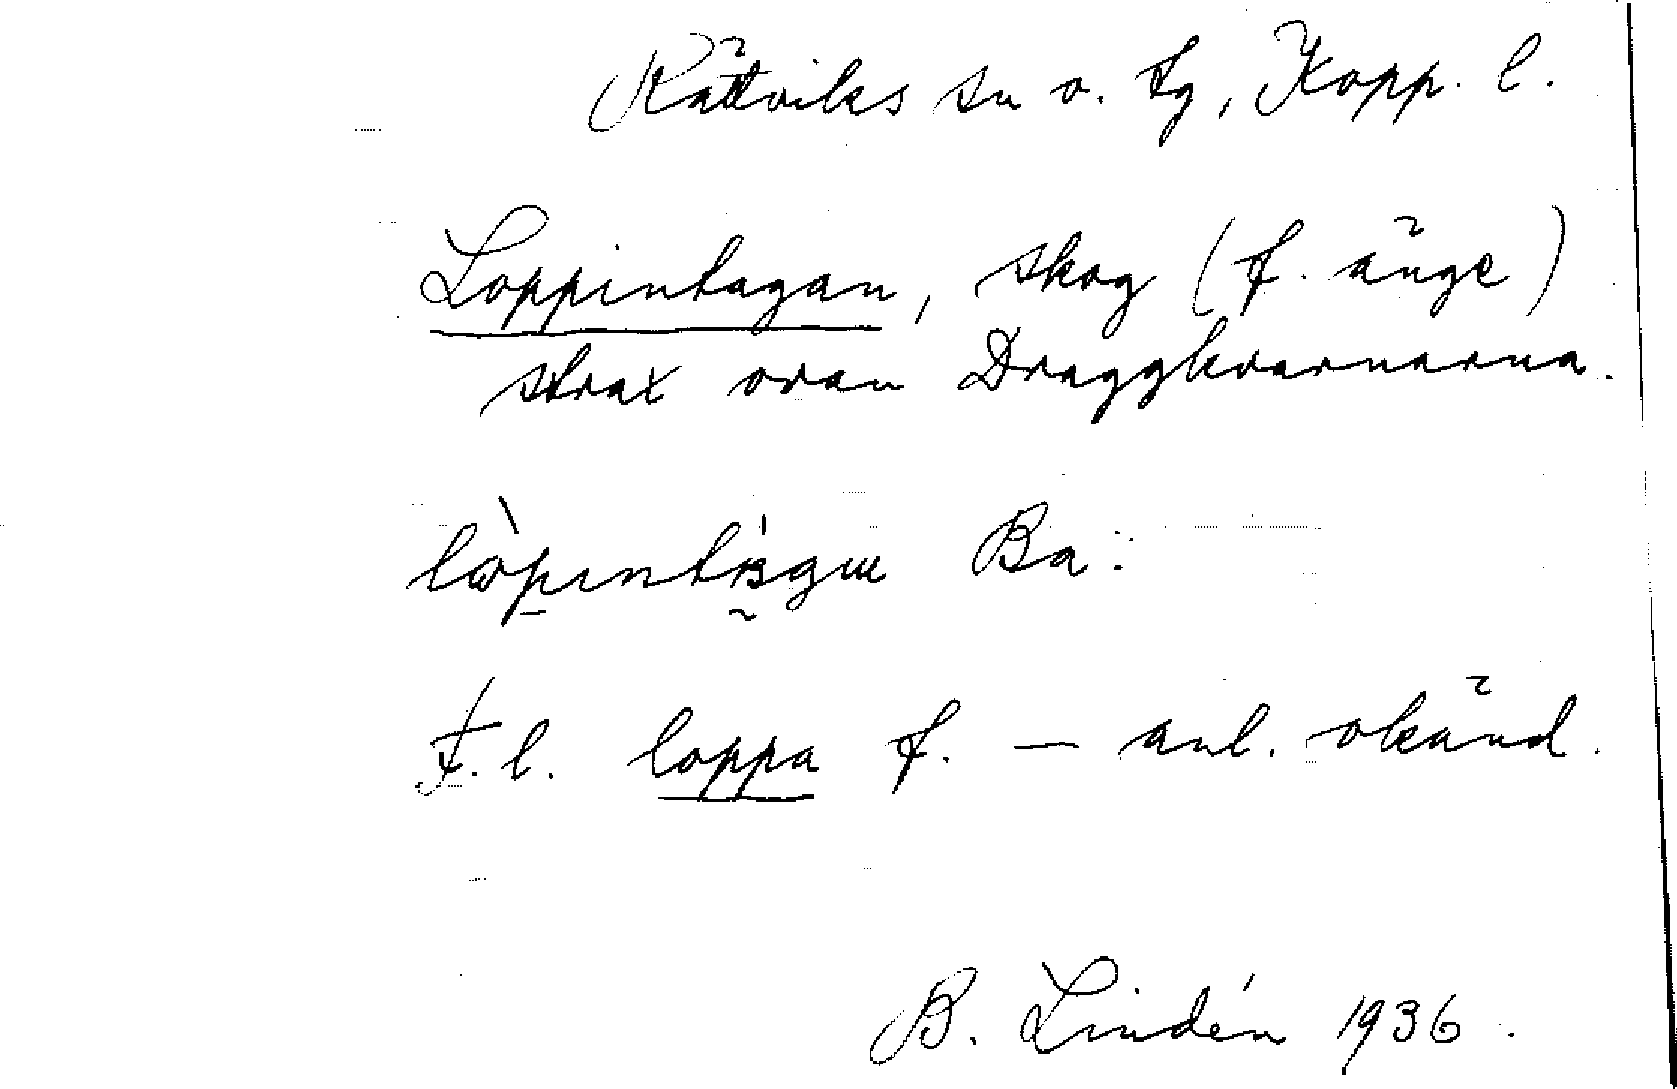 Rättviks sn o. tg, Kopp. l.
Loppintagan, skog (f. änge)
strax ovan Draggkvarnarna.
Ba:
F.l. loppa f. — anl. okänd.
B. Lindén 1936.